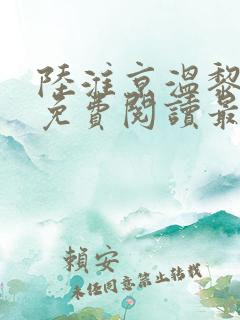 陸淮京溫黎
免費閱讀最
賴安
未經同意禁止轉載